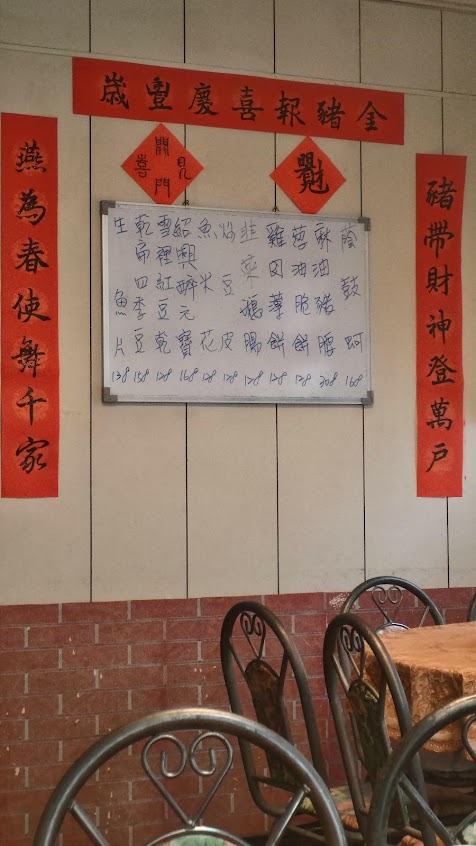 金豬報喜慶豐歲
豬帶財神登萬戶
燕為春使舞千家
開門見喜
蔭鼓蚵 168
麻油豬腰 208
蔥油脆餅 128
雞肉薄餅 128
韭菜腸 128
豆皮 128
魚米花 128
紹興醉元寶 168
雪裡紅豆乾 128
乾四季豆 158
生魚片 138